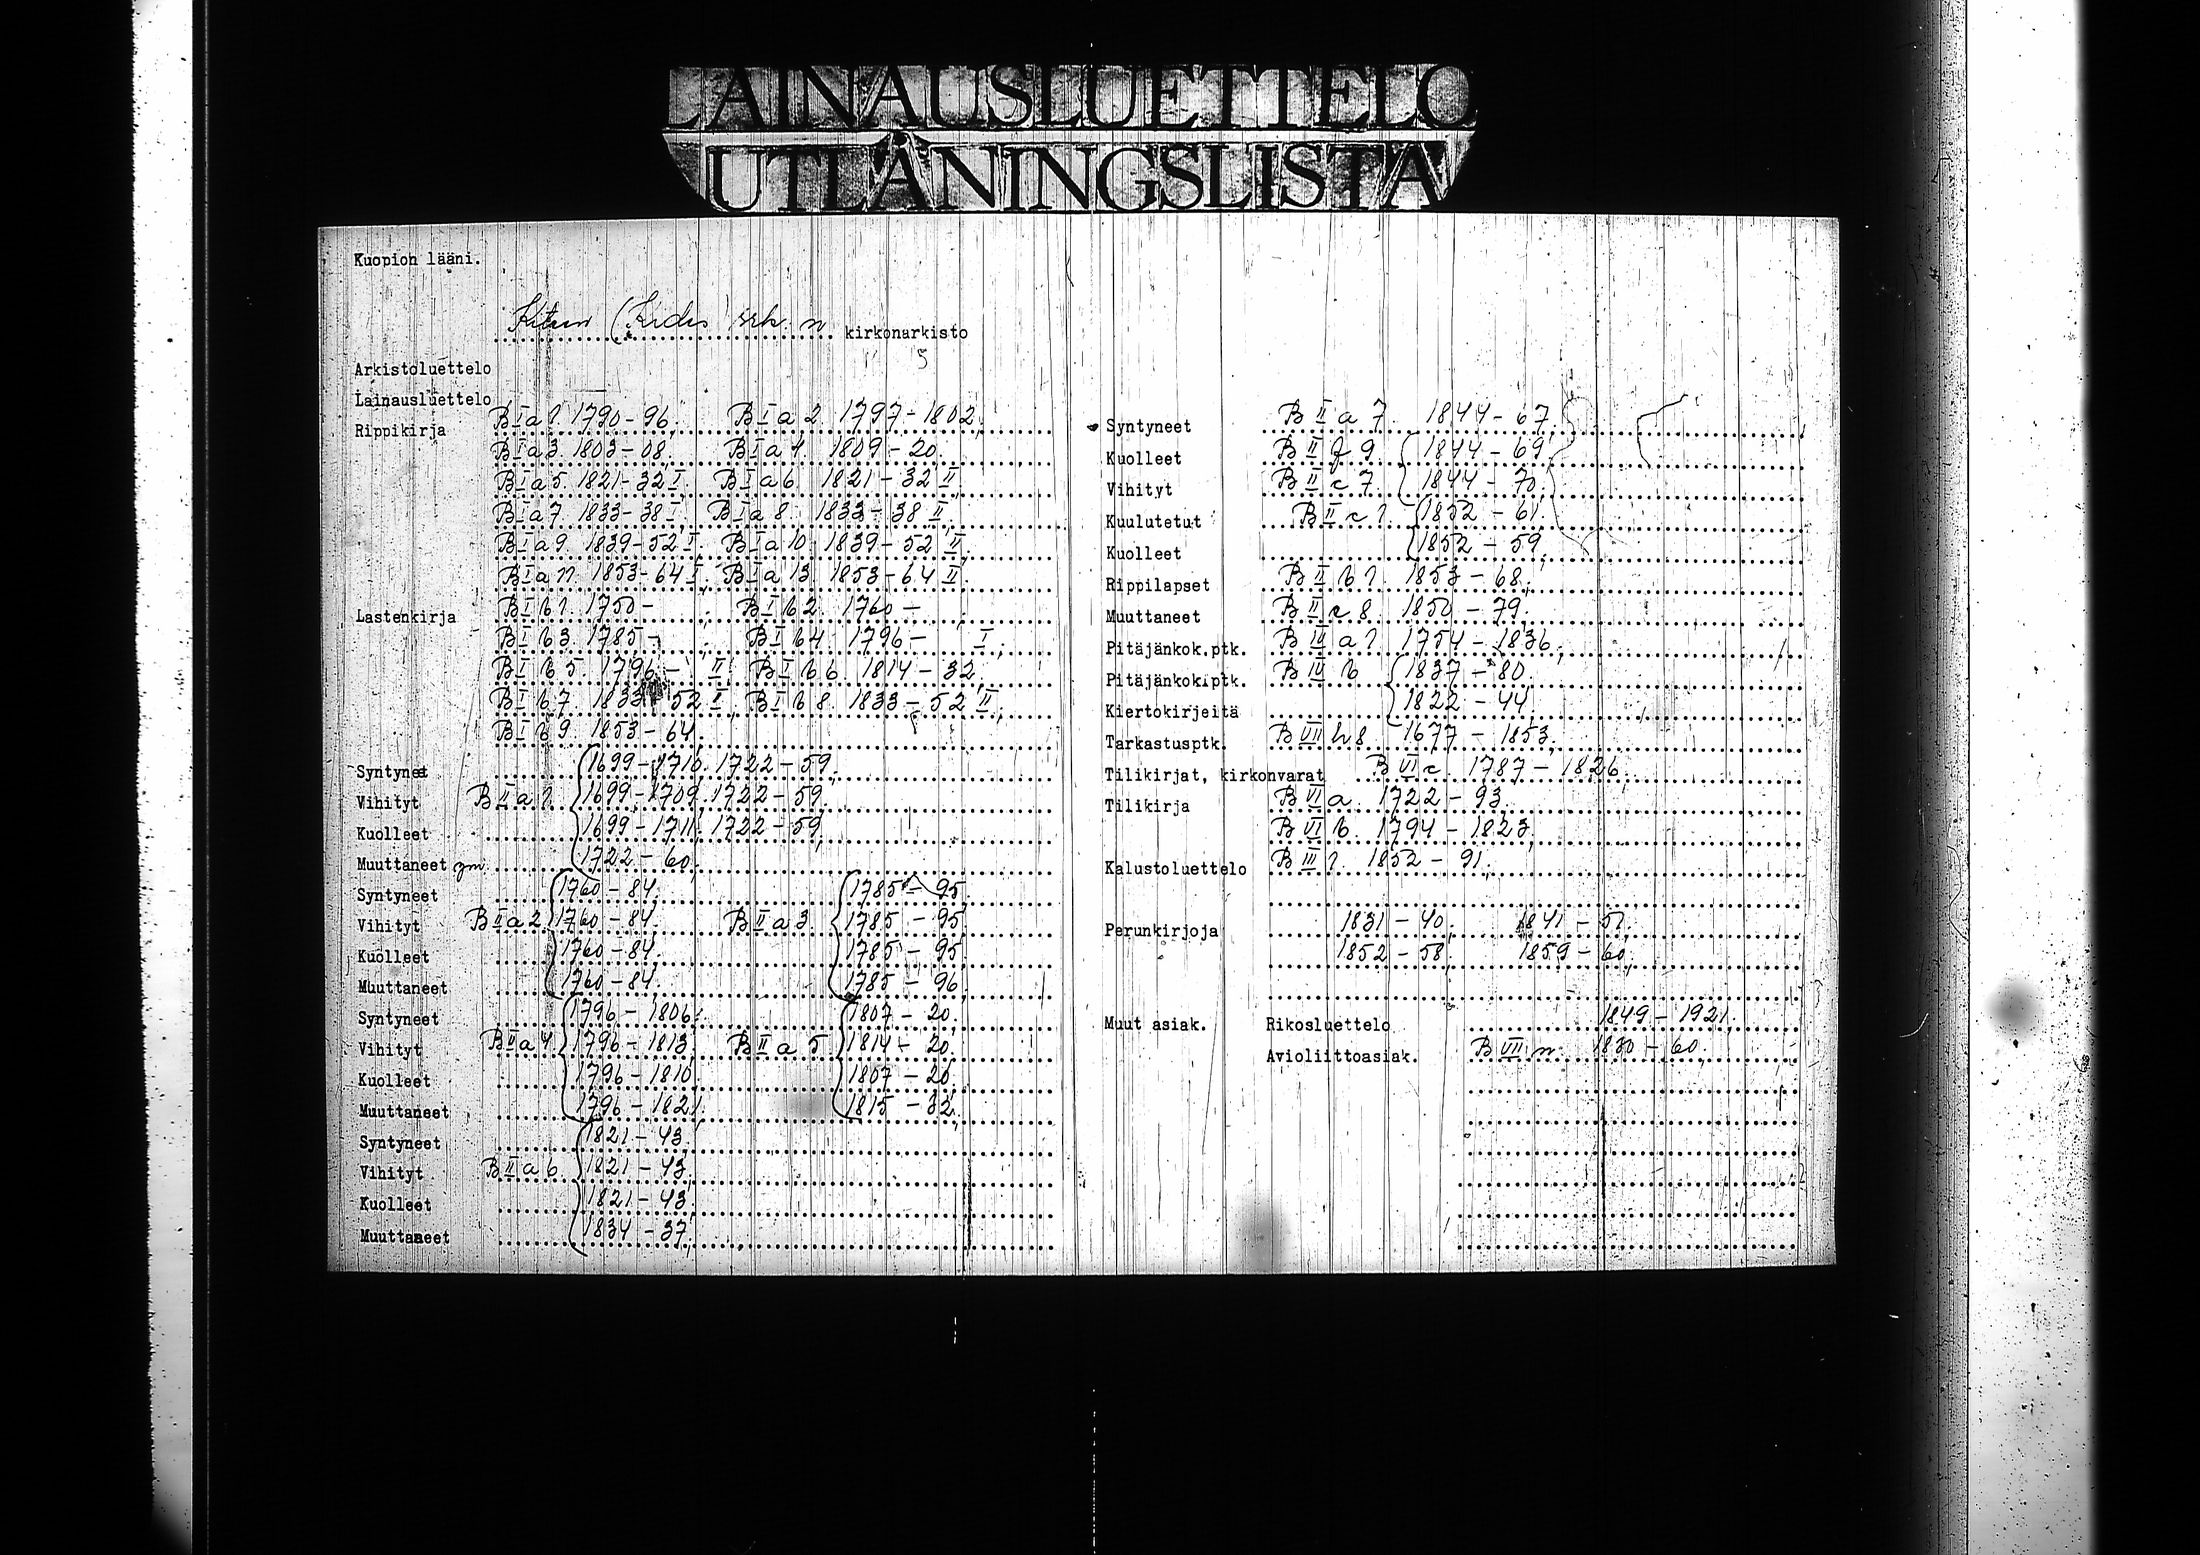 LAINAUSLUETTELO
UTLÅNINGSLISTA
Kuopion lääni.
Kiteen (Kides) srk. n kirkonarkisto
Arkistoluettelo
Lainausluettelo
Rippikirja B I a 1. 1790-96, B I a 2 1797-1802,
B I a 3. 1803-08. B I a 4. 1809-20.
B I a 5 1821-32 I. B I a 6 1821-32 II,
B I a 7 1833-38 I, B I a 8 1833-38 II,
B I a 9 1839-52 I, B I a 10 1839-52 II,
B I a 11. 1853-64 I, B I a 13. 1853-64 II.
Lastenkirja B I b 1. 1750- ; B I b 2. 1760- ;
B I b 3. 1785- ; B I b 4 1796- I,
B I b 5. 1796- II, B I b 6 1814-32,
B I b 7. 1833-52 I, B I b 8. 1833-52 II,
B I b 9. 1853-64.
Syntyneet 1699-1710. 1722-59,
Vihityt B II a 1. 1699-1709, 1722-59.
Kuolleet 1699-1711. 1722-59,
Muuttaneet ym. 1722-60,
Syntyneet 1760-84. 1785-95.
Vihityt B II a 2 1760-84, B II a 3 1785-95,
Kuolleet 1760-84. 1785-95
Muuttaneet 1760-84. 1785-96,
Syntyneet 1796-1806. 1807-20.
Vihityt B II a 4 1796-1813. B II a 5 1814-20.
Kuolleet 1796-1810, 1807-20
Muuttaneet 1796-1821. 1815-32,
Syntyneet 1821-43.
Vihityt B II a 6. 1821-43.
Kuolleet 1821-43
Muuttaneet 1834-37,
Syntyneet B II a 7. 1844-67.
Kuolleet B II f 9 1844-69,
Vihityt B II c 7. 1844-70.
Kuulutetut B II c 1 1852-61
Kuolleet 1852-59,
Rippilapset B II b 1. 1853-68,
Muuttaneet B II c 8. 1850-79.
Pitäjänkok.ptk. B IV a 1 1754-1836,
Pitäjänkok.ptk. B IV b 1837-80.
Kiertokirjeitä 1822-44.
Tarkastusptk. B VII h 8 1677-1853,
Tilikirjat, kirkonvarat B VI c. 1787-1826,
Tilikirja B VI a. 1722-93.
B VI b. 1794-1823,
Kalustoluettelo B III 1. 1852-91.
Perunkirjoja 1831-40, 1841-51,
1852-58, 1859-60,
Muut asiak. Rikosluettelo 1849-1921,
Avioliittoasiak. B VII n. 1830-60,